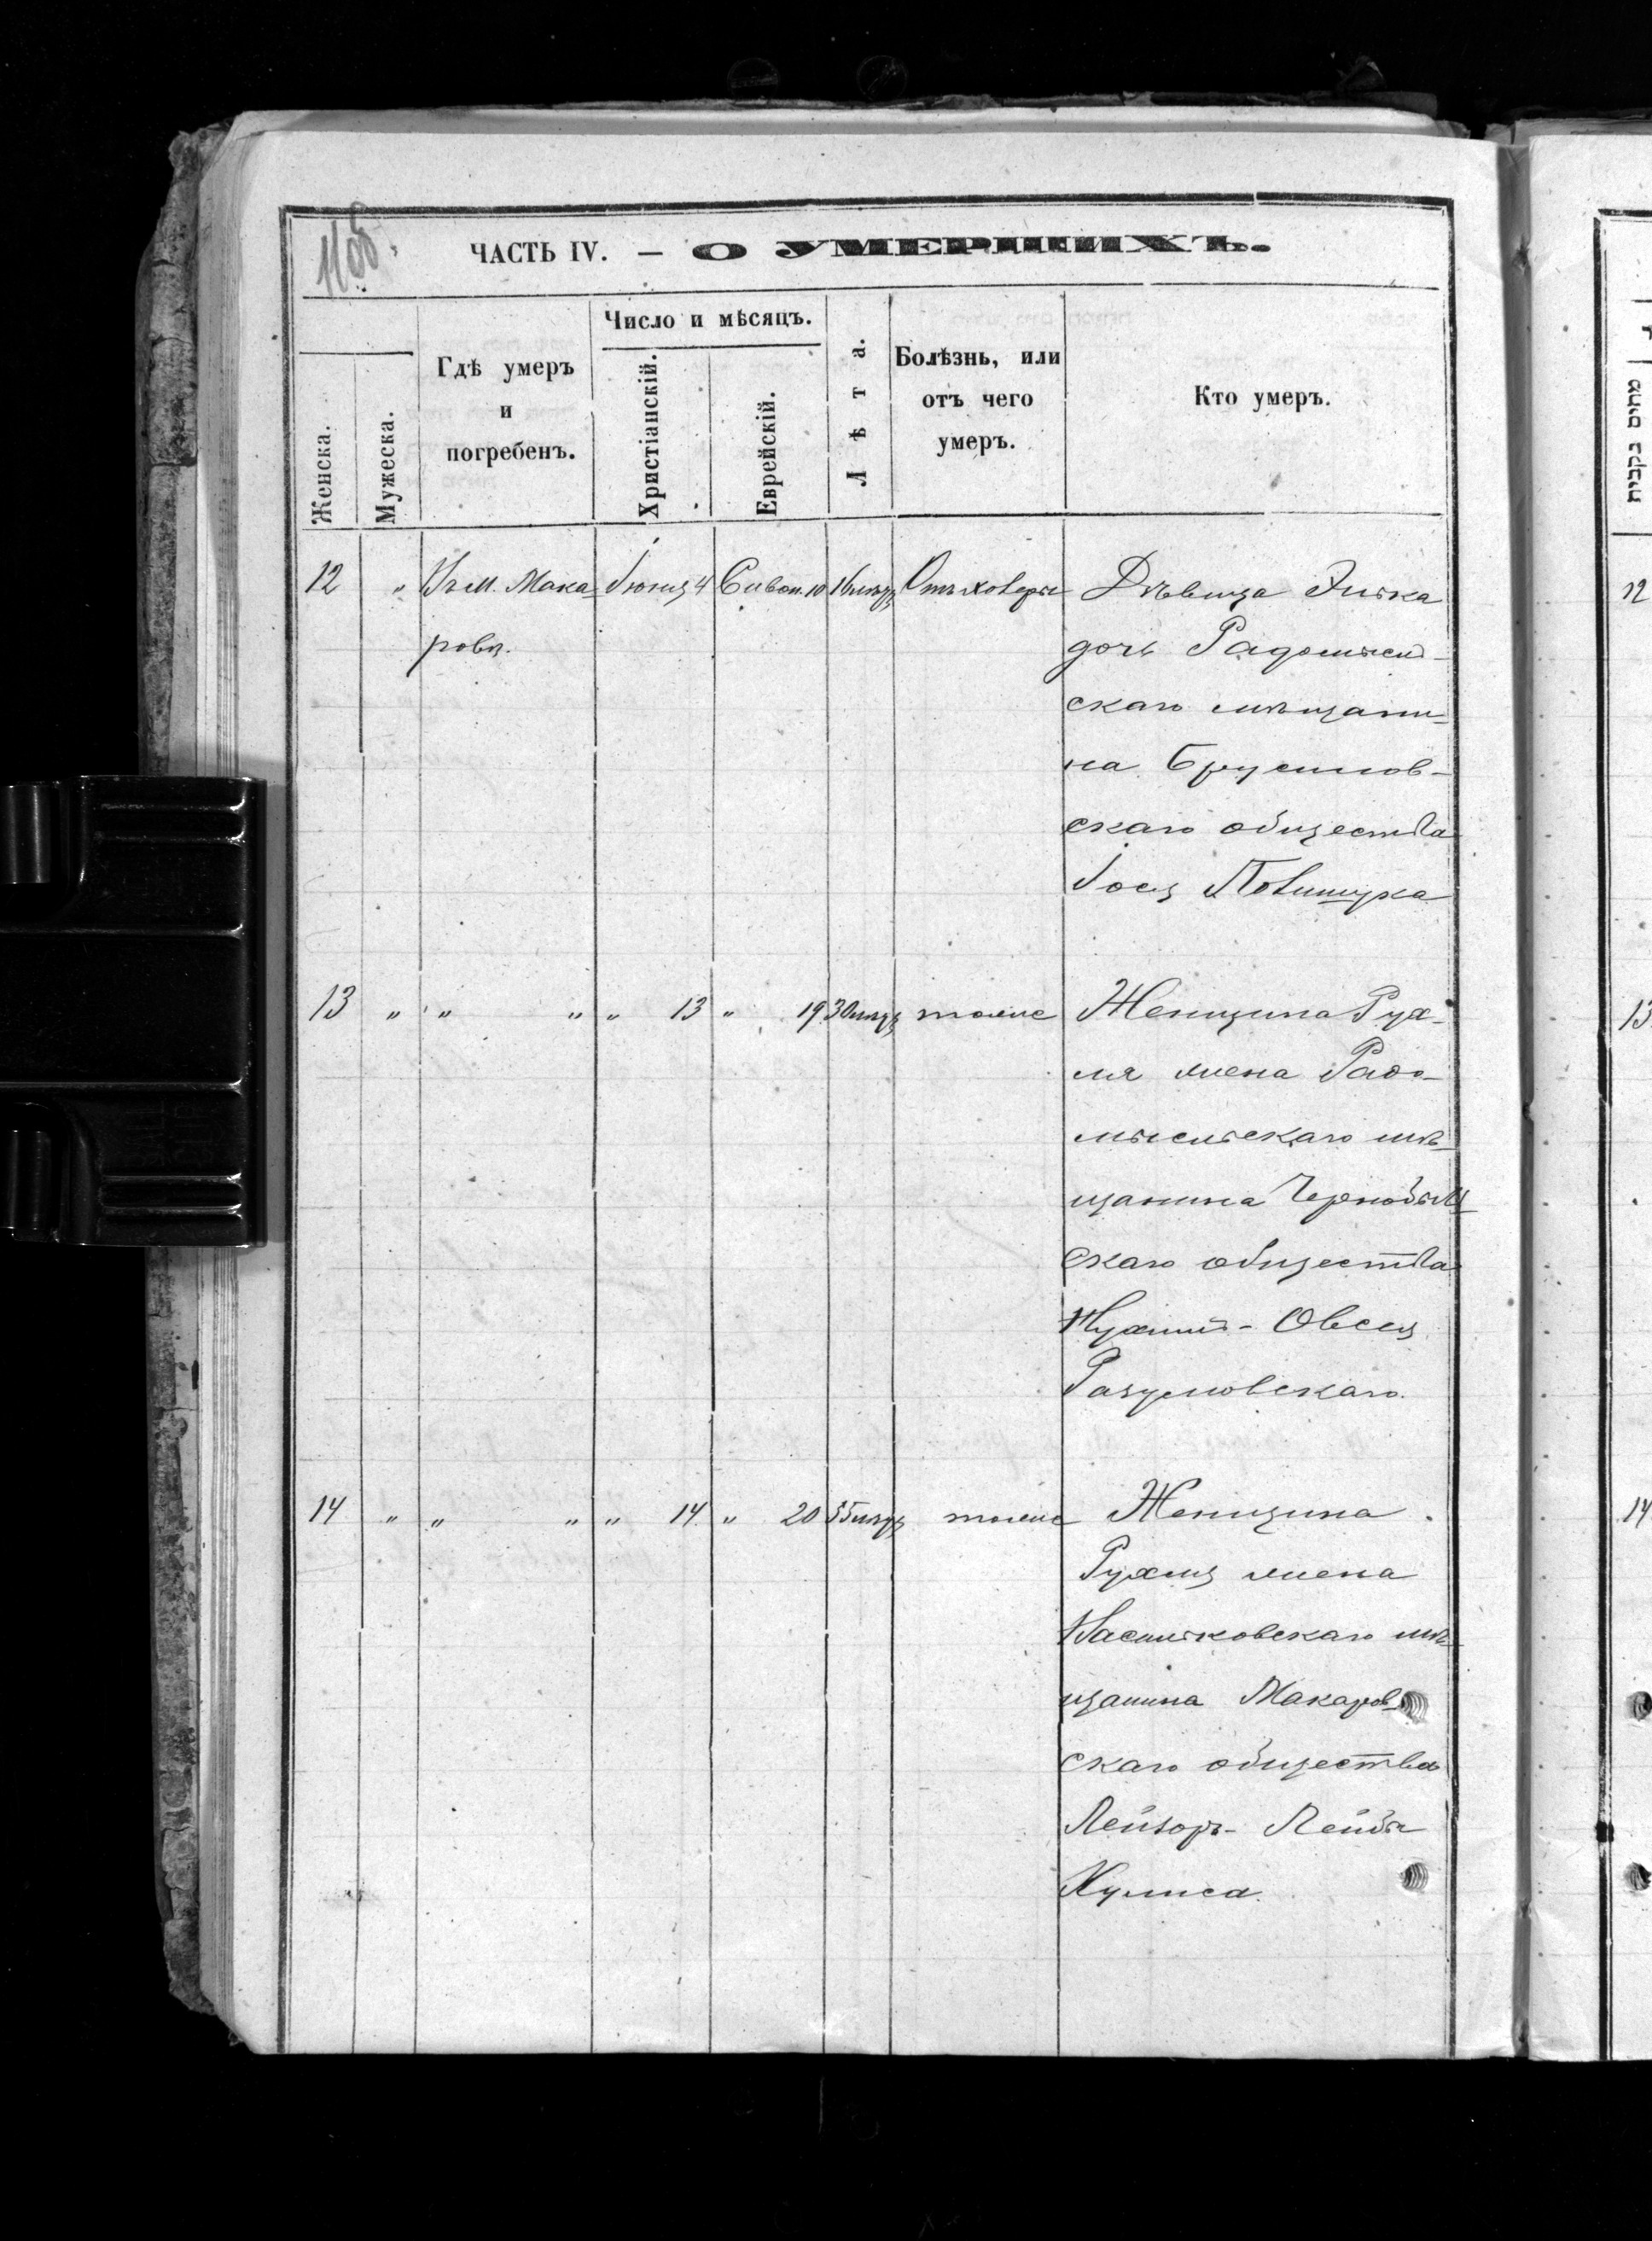 1106
ЧАСТЬ IV. — О УМЕРШИХЪ.
Женска.
Мужеска.
Гдѣ умеръ
и
погребенъ.
Число и мѣсяцъ.
Христіанскій.
Еврейскій.
Лѣта.
Болѣзнь, или
отъ чего
умеръ.
Кто умеръ.
12 " Въ м. Мака- Іюня 4 Сиван. 10 16 лѣтъ Отъ холеры Дѣвица Элька
ровѣ. дочь Радомысл-
скаго мѣщани-
на Брусилов-
скаго общества
Іося Повищука
13 " " " " 13 " 19 30 лѣтъ тоже Женщина Рух-
ля жена Радо-
мысльскаго мѣ-
щанина Чернобыл-
скаго общества
Нухимъ-Овсея
Разумовскаго.
14 " " " " 14 " 20 55 лѣтъ тоже Женщина
Рухля жена
Васильковскаго мѣ-
щанина Макаров-
скаго общества
Лейзоръ-Лейбы
Кулиса.
מתים נקבות
12
13
14